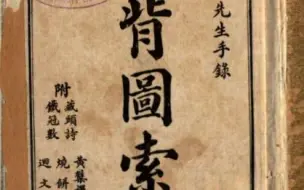 先生手錄
背圖索
附
藏頭詩
鐵冠數
黃蘗
燒餅
迴文